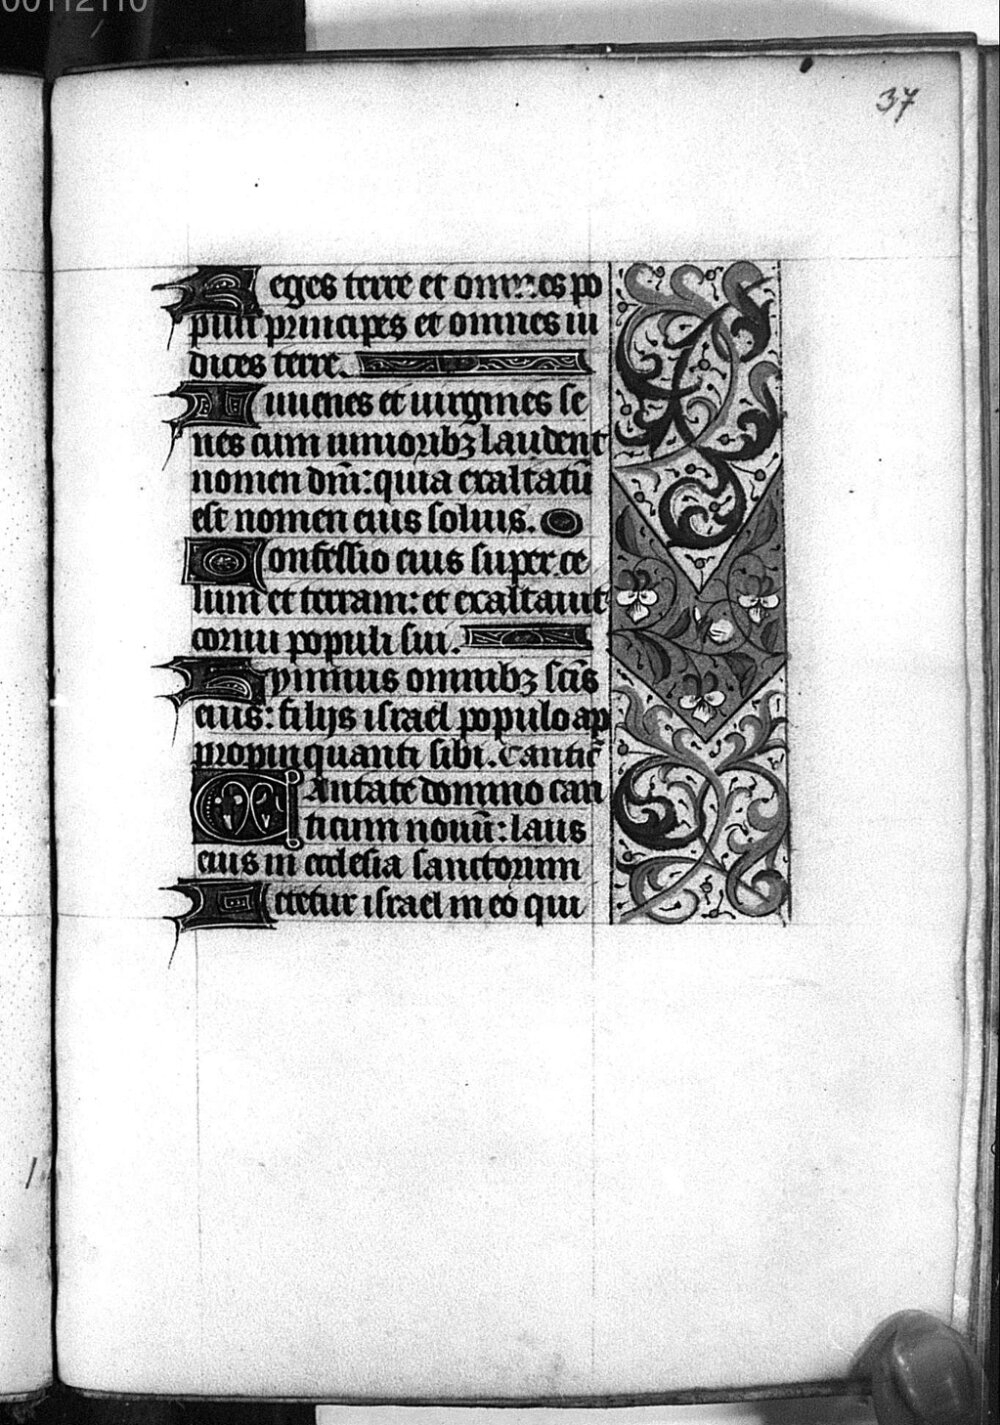 00112110
37
Reges terre et omnes po
puli principes et omnes iu
dices terre.
Iuuenes et uirgines se
nes cum iunioribꝫ laudent
nomen dn̄i: quia exaltatū
est nomen eius solius.
Confessio eius super ce
lum et terram: et exaltauit
cornu populi sui.
Hymnus omnibꝫ sc̄is
eius: filijs israel populo ap
propinquanti sibi. Cantic̄
Cantate domino can
ticum nouū: laus
eius in ecclesia sanctorum
Letetur israel in eo qui